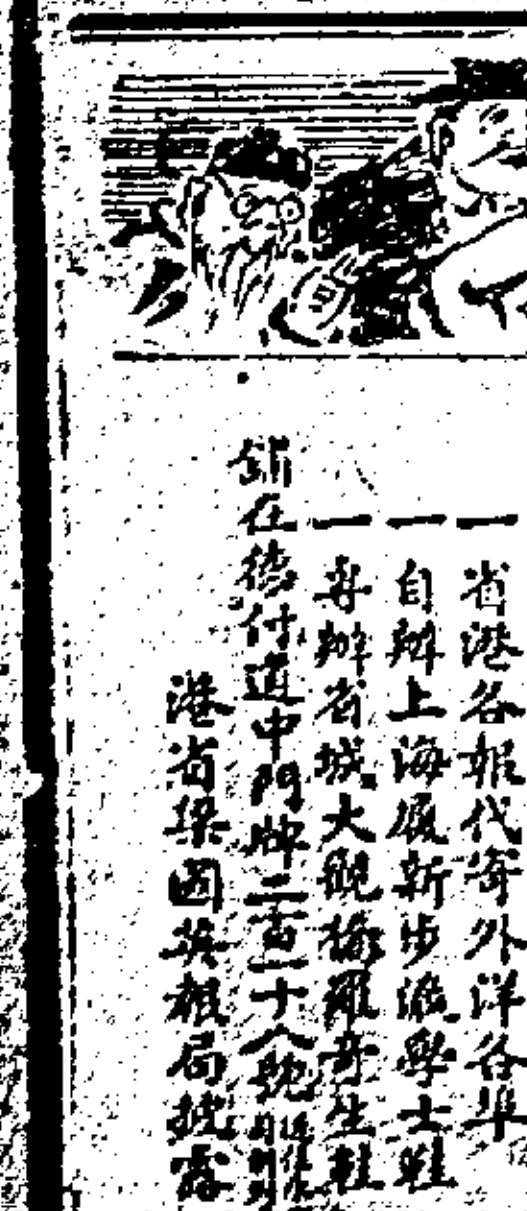 一省港各報代寄外洋各埠
一自辦上海履新步雲學士鞋
一專辦省城大觀綠羅奇生鞋
舖在德付道中門牌二百一十八號
港省梁國英報局披露